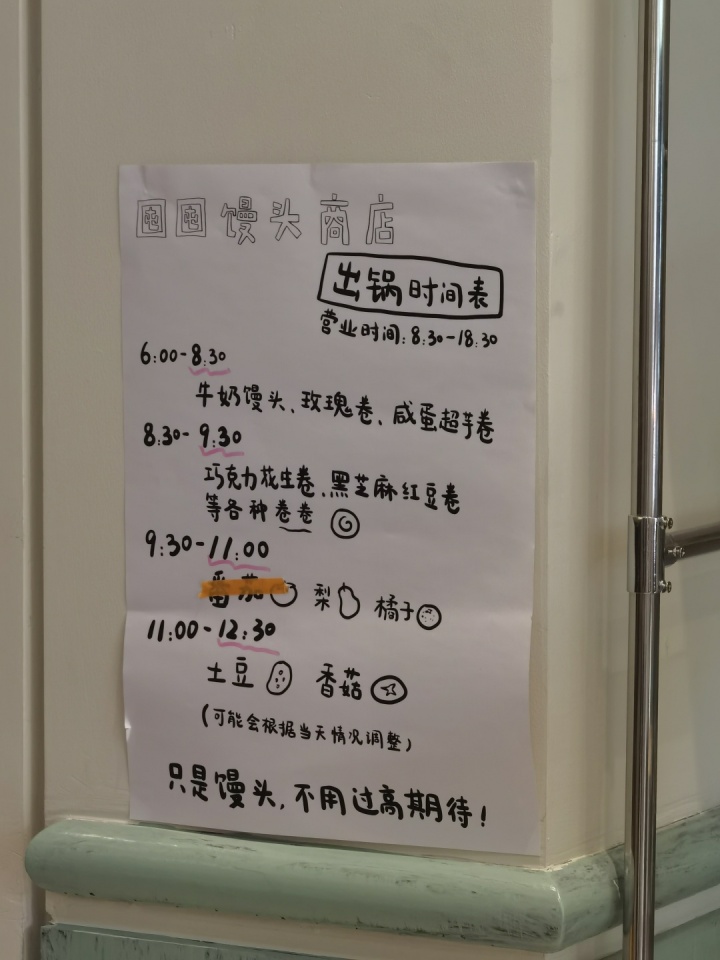 囤囤馒头商店
出锅时间表
营业时间:8:30-18:30
6:00-8:30
牛奶馒头、玫瑰卷、咸蛋超芋卷
8:30-9:30
巧克力花生卷、黑芝麻红豆卷
等各种卷卷
9:30-11:00
番茄 梨 橘子
11:00-12:30
土豆 香菇
(可能会根据当天情况调整)
只是馒头,不用过高期待!